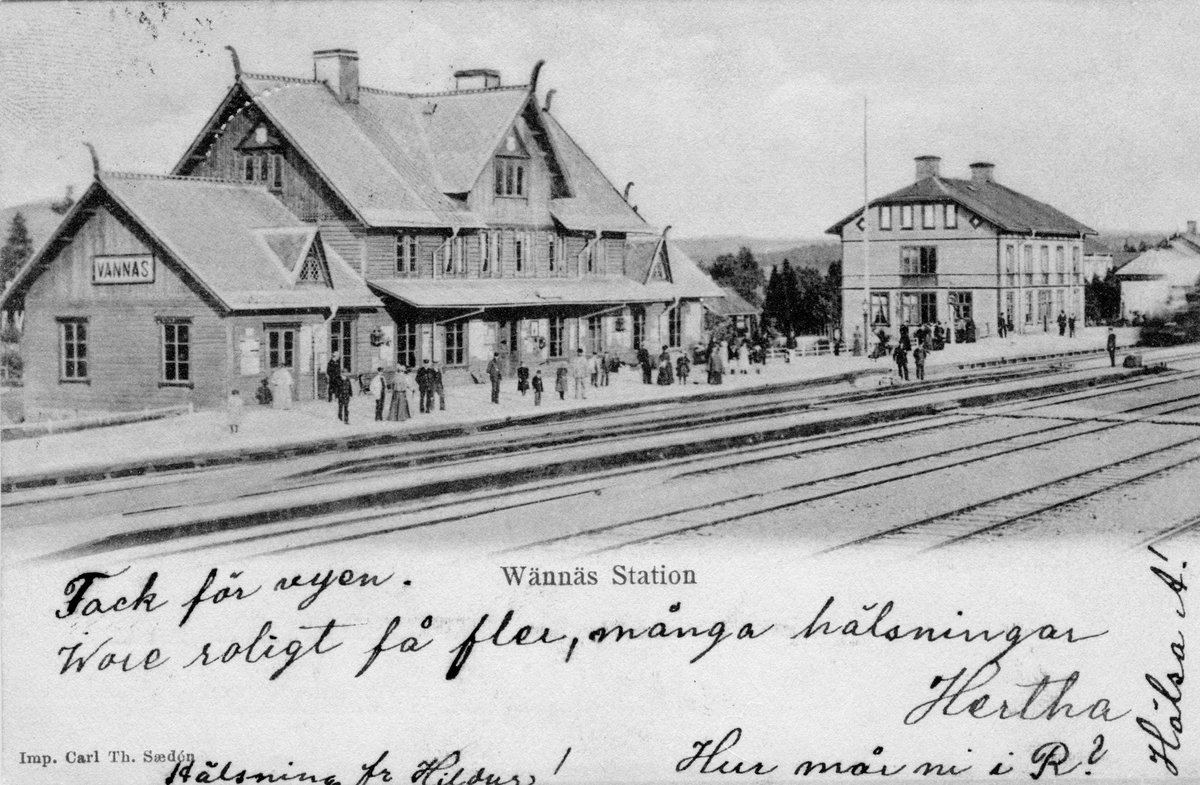 VÄNNÄS
Wännäs Station
Tack för vyen.
Wore roligt få fler, många hälsningar
Hertha
Hälsa A!
Imp. Carl Th. Sædén
Hälsning fr Hildur!
Hur mår ni i R?